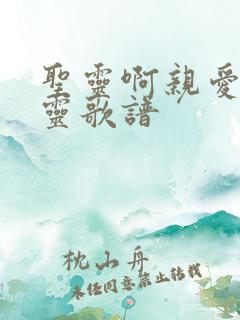 聖靈啊親愛
靈歌譜
枕山舟
未經同意禁止轉載